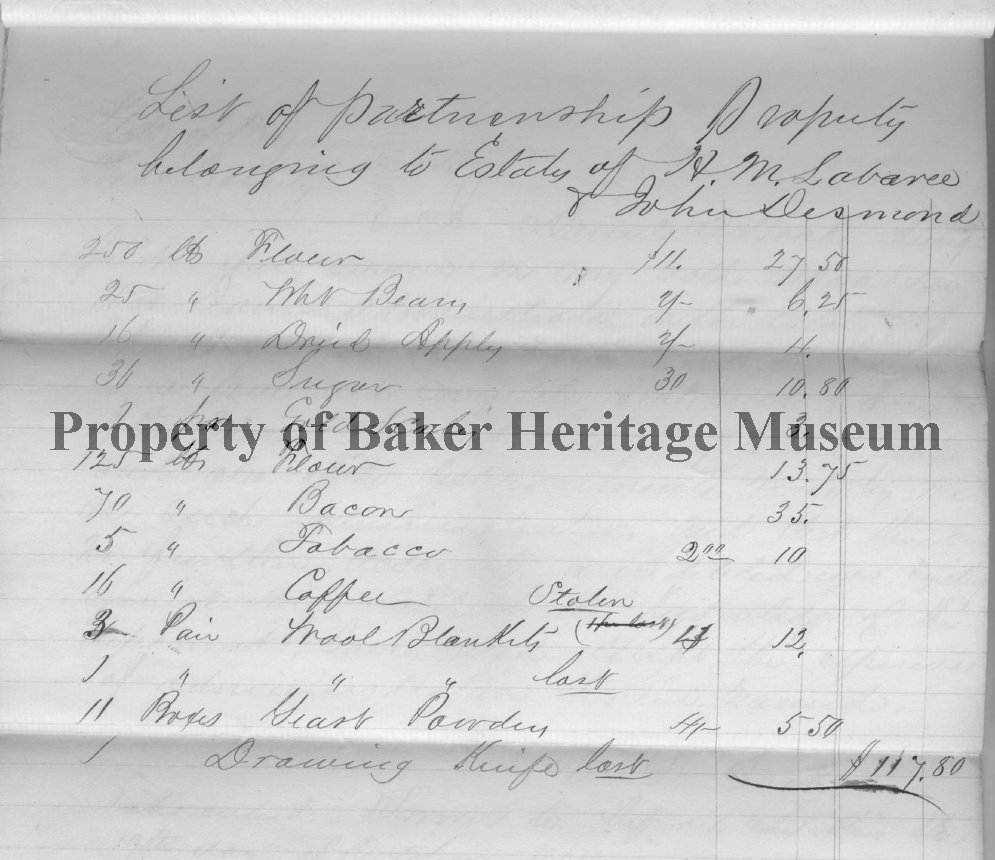 List of Partnership Property
belonging to Estate of H. M. Labaree
& John Desmond
250 lbs Flour $11. 27 50
25 " Wht Beans 2/- 6.25
16 " Dried Apples 2/- 4.
36 " Sugar 30 10.80
Property of Baker Heritage Museum
3.
125 lbs Flour 13.75
70 " Bacon 35.
5 " Tobacco 2 00 10
16 " Coffee Stolen
Pair Wool Blankets 12.
1 " " " lost
11 Boxes Yeast Powders 4/- 5 50
1 Drawing Knife lost $117.80